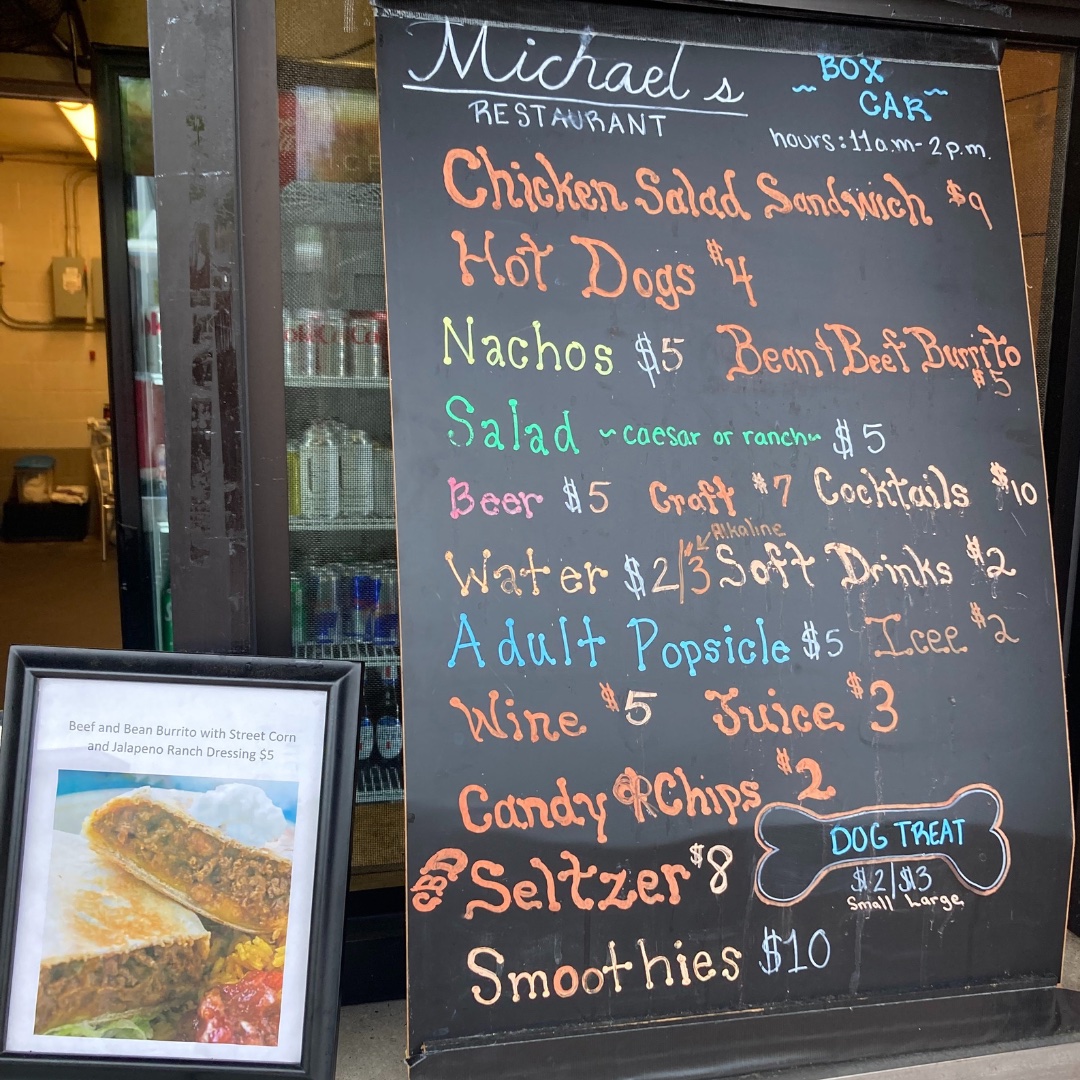 Michael's
RESTAURANT
BOX
CAR
hours: 11a.m - 2p.m.
Chicken Salad Sandwich $9
Hot Dogs $4
Nachos $5 Bean+Beef Burrito
$5
Salad ~caesar or ranch~ $5
Beer $5 Craft $7 Cocktails $10
Alkaline
Water $2/3 Soft Drinks $2
Adult Popsicle $5 Icee $2
Wine $5 Juice $3
Candy OR Chips $2
Seltzer $8
DOG TREAT
$2|$13
Small Large
Smoothies $10
Beef and Bean Burrito with Street Corn
and Jalapeno Ranch Dressing $5